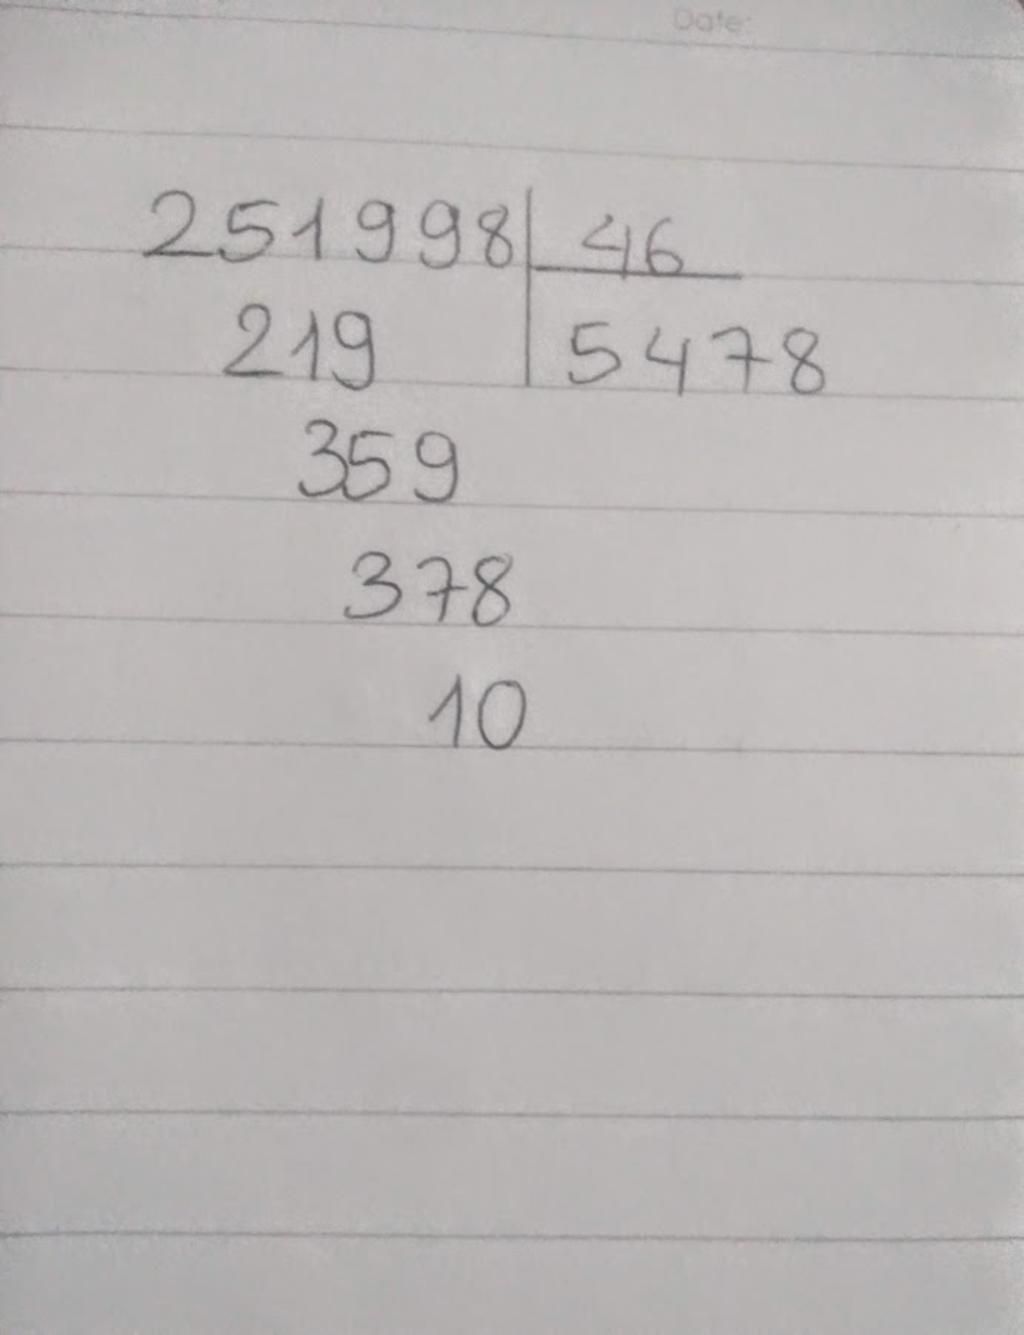 Date:
251998 46
219 5478
359
378
10